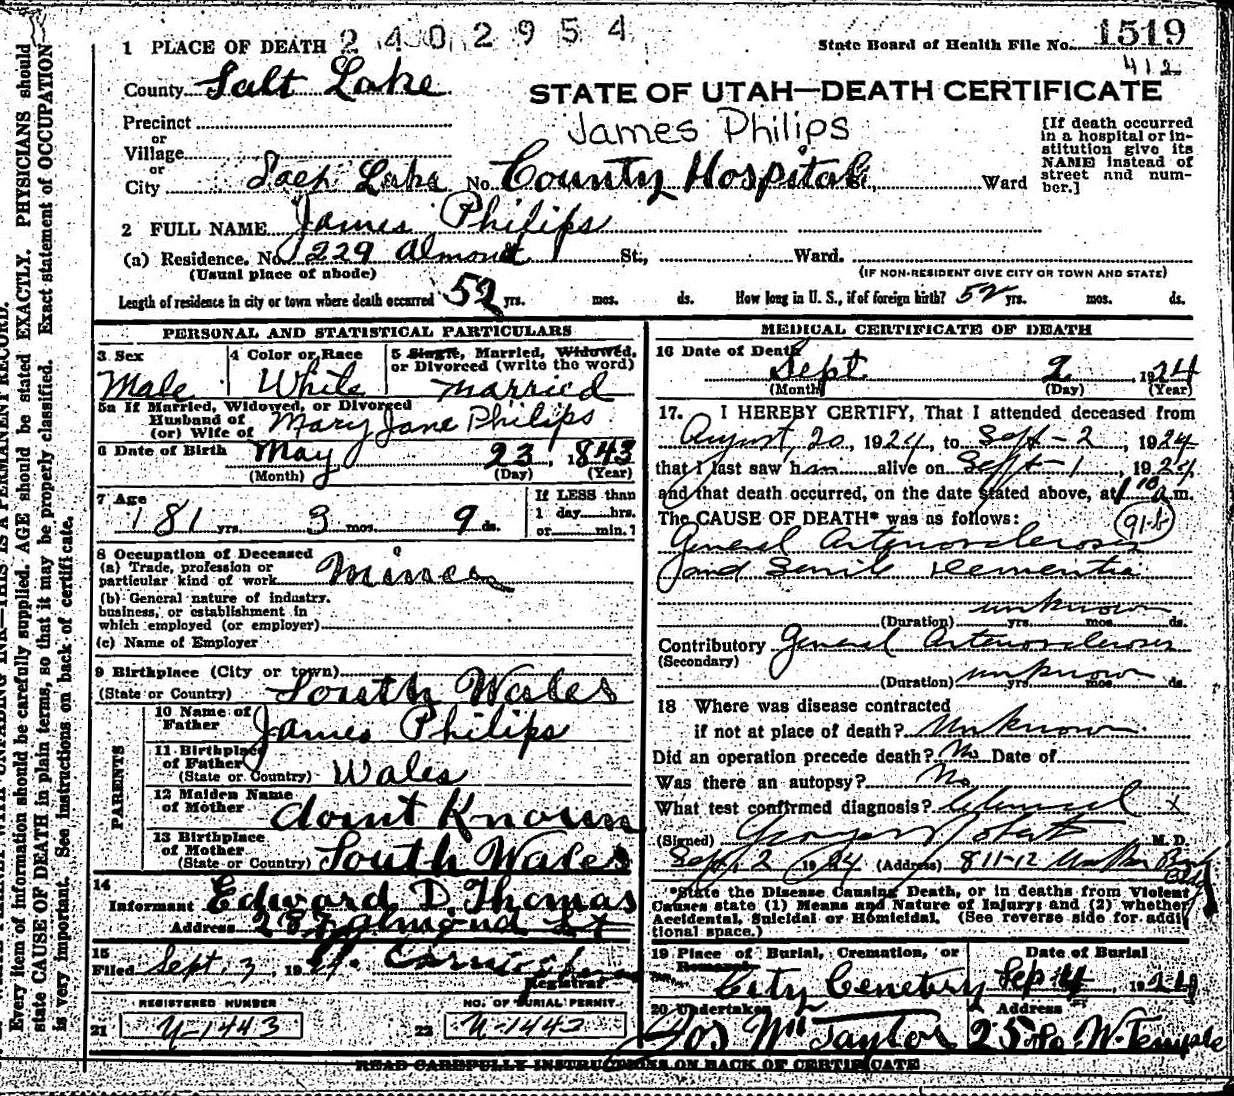 1 PLACE OF DEATH 2 4 0 2 9 5 4
State Board of Health File No. 1519
412
County Salt Lake
STATE OF UTAH—DEATH CERTIFICATE
Precinct
James Philips
or
Village
or
City Salt Lake No. County Hospital St., Ward
[If death occurred
in a hospital or in-
stitution give its
NAME instead of
street and num-
ber.]
2 FULL NAME James Philips
(a) Residence. No. 229 Almond St., Ward.
(Usual place of abode)
(IF NON-RESIDENT GIVE CITY OR TOWN AND STATE)
Length of residence in city or town where death occurred 52 yrs. mos. ds. How long in U. S., if of foreign birth? 52 yrs. mos. ds.
PERSONAL AND STATISTICAL PARTICULARS
3 Sex
Male
4 Color or Race
White
5 Single, Married, Widowed,
or Divorced (write the word)
Married
5a If Married, Widowed, or Divorced
Husband of
(or) Wife of Mary Jane Philips
6 Date of Birth May 23, 1843
(Month) (Day) (Year)
7 Age
81 yrs. 3 mos. 9 ds.
If LESS than
1 day hrs.
or min.?
8 Occupation of Deceased
(a) Trade, profession or
particular kind of work Miner
(b) General nature of industry,
business, or establishment in
which employed (or employer)
(c) Name of Employer
9 Birthplace (City or town)
(State or Country) South Wales
PARENTS
10 Name of
Father James Philips
11 Birthplace
of Father
(State or Country) Wales
12 Maiden Name
of Mother dont Known
13 Birthplace
of Mother
(State or Country) South Wales
14
Informant Edward D Thomas
Address Almond St
15
Filed Sept. 3, 19
Registrar
REGISTERED NUMBER
21 N-1443
NO. OF BURIAL PERMIT.
22 N-1442
MEDICAL CERTIFICATE OF DEATH
16 Date of Death
Sept. 2 1924
(Month) (Day) (Year)
17. I HEREBY CERTIFY, That I attended deceased from
August 20, 1924, to Sept-2, 1924
that I last saw him alive on Sept-1, 1924
and that death occurred, on the date stated above, at 1 10 a.m.
The CAUSE OF DEATH* was as follows: 91-b
General Arteriosclerosis
and Senile Dementia
unknown
(Duration) yrs. mos. ds.
Contributory General Arteriosclerosis
(Secondary)
(Duration) unknown yrs. mos. ds.
18 Where was disease contracted
if not at place of death? Unknown.
Did an operation precede death? No Date of
Was there an autopsy? No
What test confirmed diagnosis? Clinical x
(Signed) M. D.
Sept. 2 1924 (Address) 811-12 Bldg
*State the Disease Causing Death, or in deaths from Violent
Causes state (1) Means and Nature of Injury; and (2) whether
Accidental, Suicidal or Homicidal. (See reverse side for addi-
tional space.)
19 Place of Burial, Cremation, or
Removal
City Cemetery
Date of Burial
Sep 4 1924
20 Undertaker
Jos Wm Taylor
Address
25 So. W. Temple
READ CAREFULLY INSTRUCTIONS ON BACK OF CERTIFICATE
THIS IS A PERMANENT RECORD.
Every item of information should be carefully supplied. AGE should be stated EXACTLY. PHYSICIANS should
state CAUSE OF DEATH in plain terms, so that it may be properly classified. Exact statement of OCCUPATION
is very important. See instructions on back of certificate.